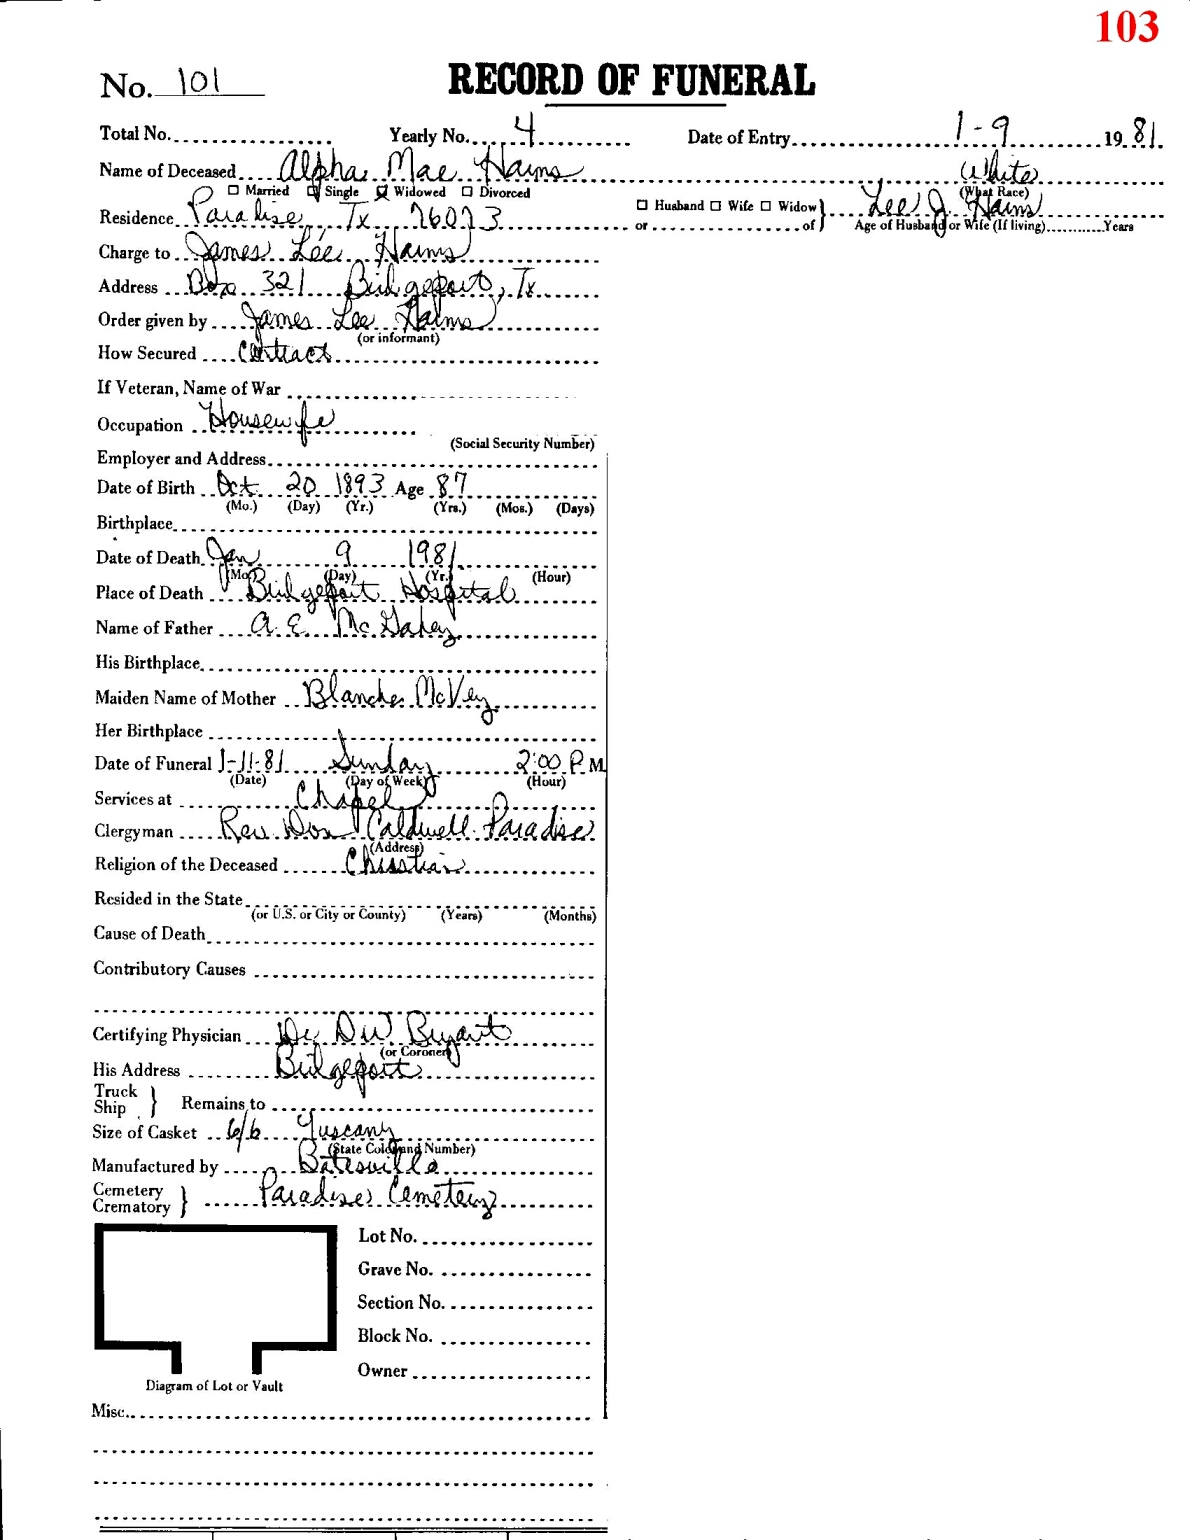 103
No. 101 RECORD OF FUNERAL
Total No. Yearly No. 4 Date of Entry 1-9 1981
Name of Deceased Alpha Mae Hams White
☐ Married ☐ Single ☒ Widowed ☐ Divorced (What Race)
Residence Paradise, Tx 76073 ☐ Husband ☐ Wife ☐ Widow } Lee J. Hams
or of Age of Husband or Wife (If living) Years
Charge to James Lee Hams
Address Box 321 Bridgeport, Tx
Order given by James Lee Hams
(or informant)
How Secured Contract
If Veteran, Name of War
Occupation Housewife
(Social Security Number)
Employer and Address
Date of Birth Oct 20 1893 Age 87
(Mo.) (Day) (Yr.) (Yrs.) (Mos.) (Days)
Birthplace
Date of Death Jan 9 1981
(Mo.) (Day) (Yr.) (Hour)
Place of Death Bridgeport Hospital
Name of Father A. E. McGahey
His Birthplace
Maiden Name of Mother Blanche McVey
Her Birthplace
Date of Funeral 1-11-81 Sunday 2:00 P M
(Date) (Day of Week) (Hour)
Services at Chapel
Clergyman Rev. Don Caldwell Paradise
(Address)
Religion of the Deceased Christian
Resided in the State
(or U.S. or City or County) (Years) (Months)
Cause of Death
Contributory Causes
Certifying Physician Dr. D W Bryant
(or Coroner)
His Address Bridgeport
Truck
Ship } Remains to
Size of Casket 6/6 Tuscany
(State Color and Number)
Manufactured by Batesville
Cemetery
Crematory } Paradise Cemetery
Lot No.
Grave No.
Section No.
Block No.
Owner
Diagram of Lot or Vault
Misc.